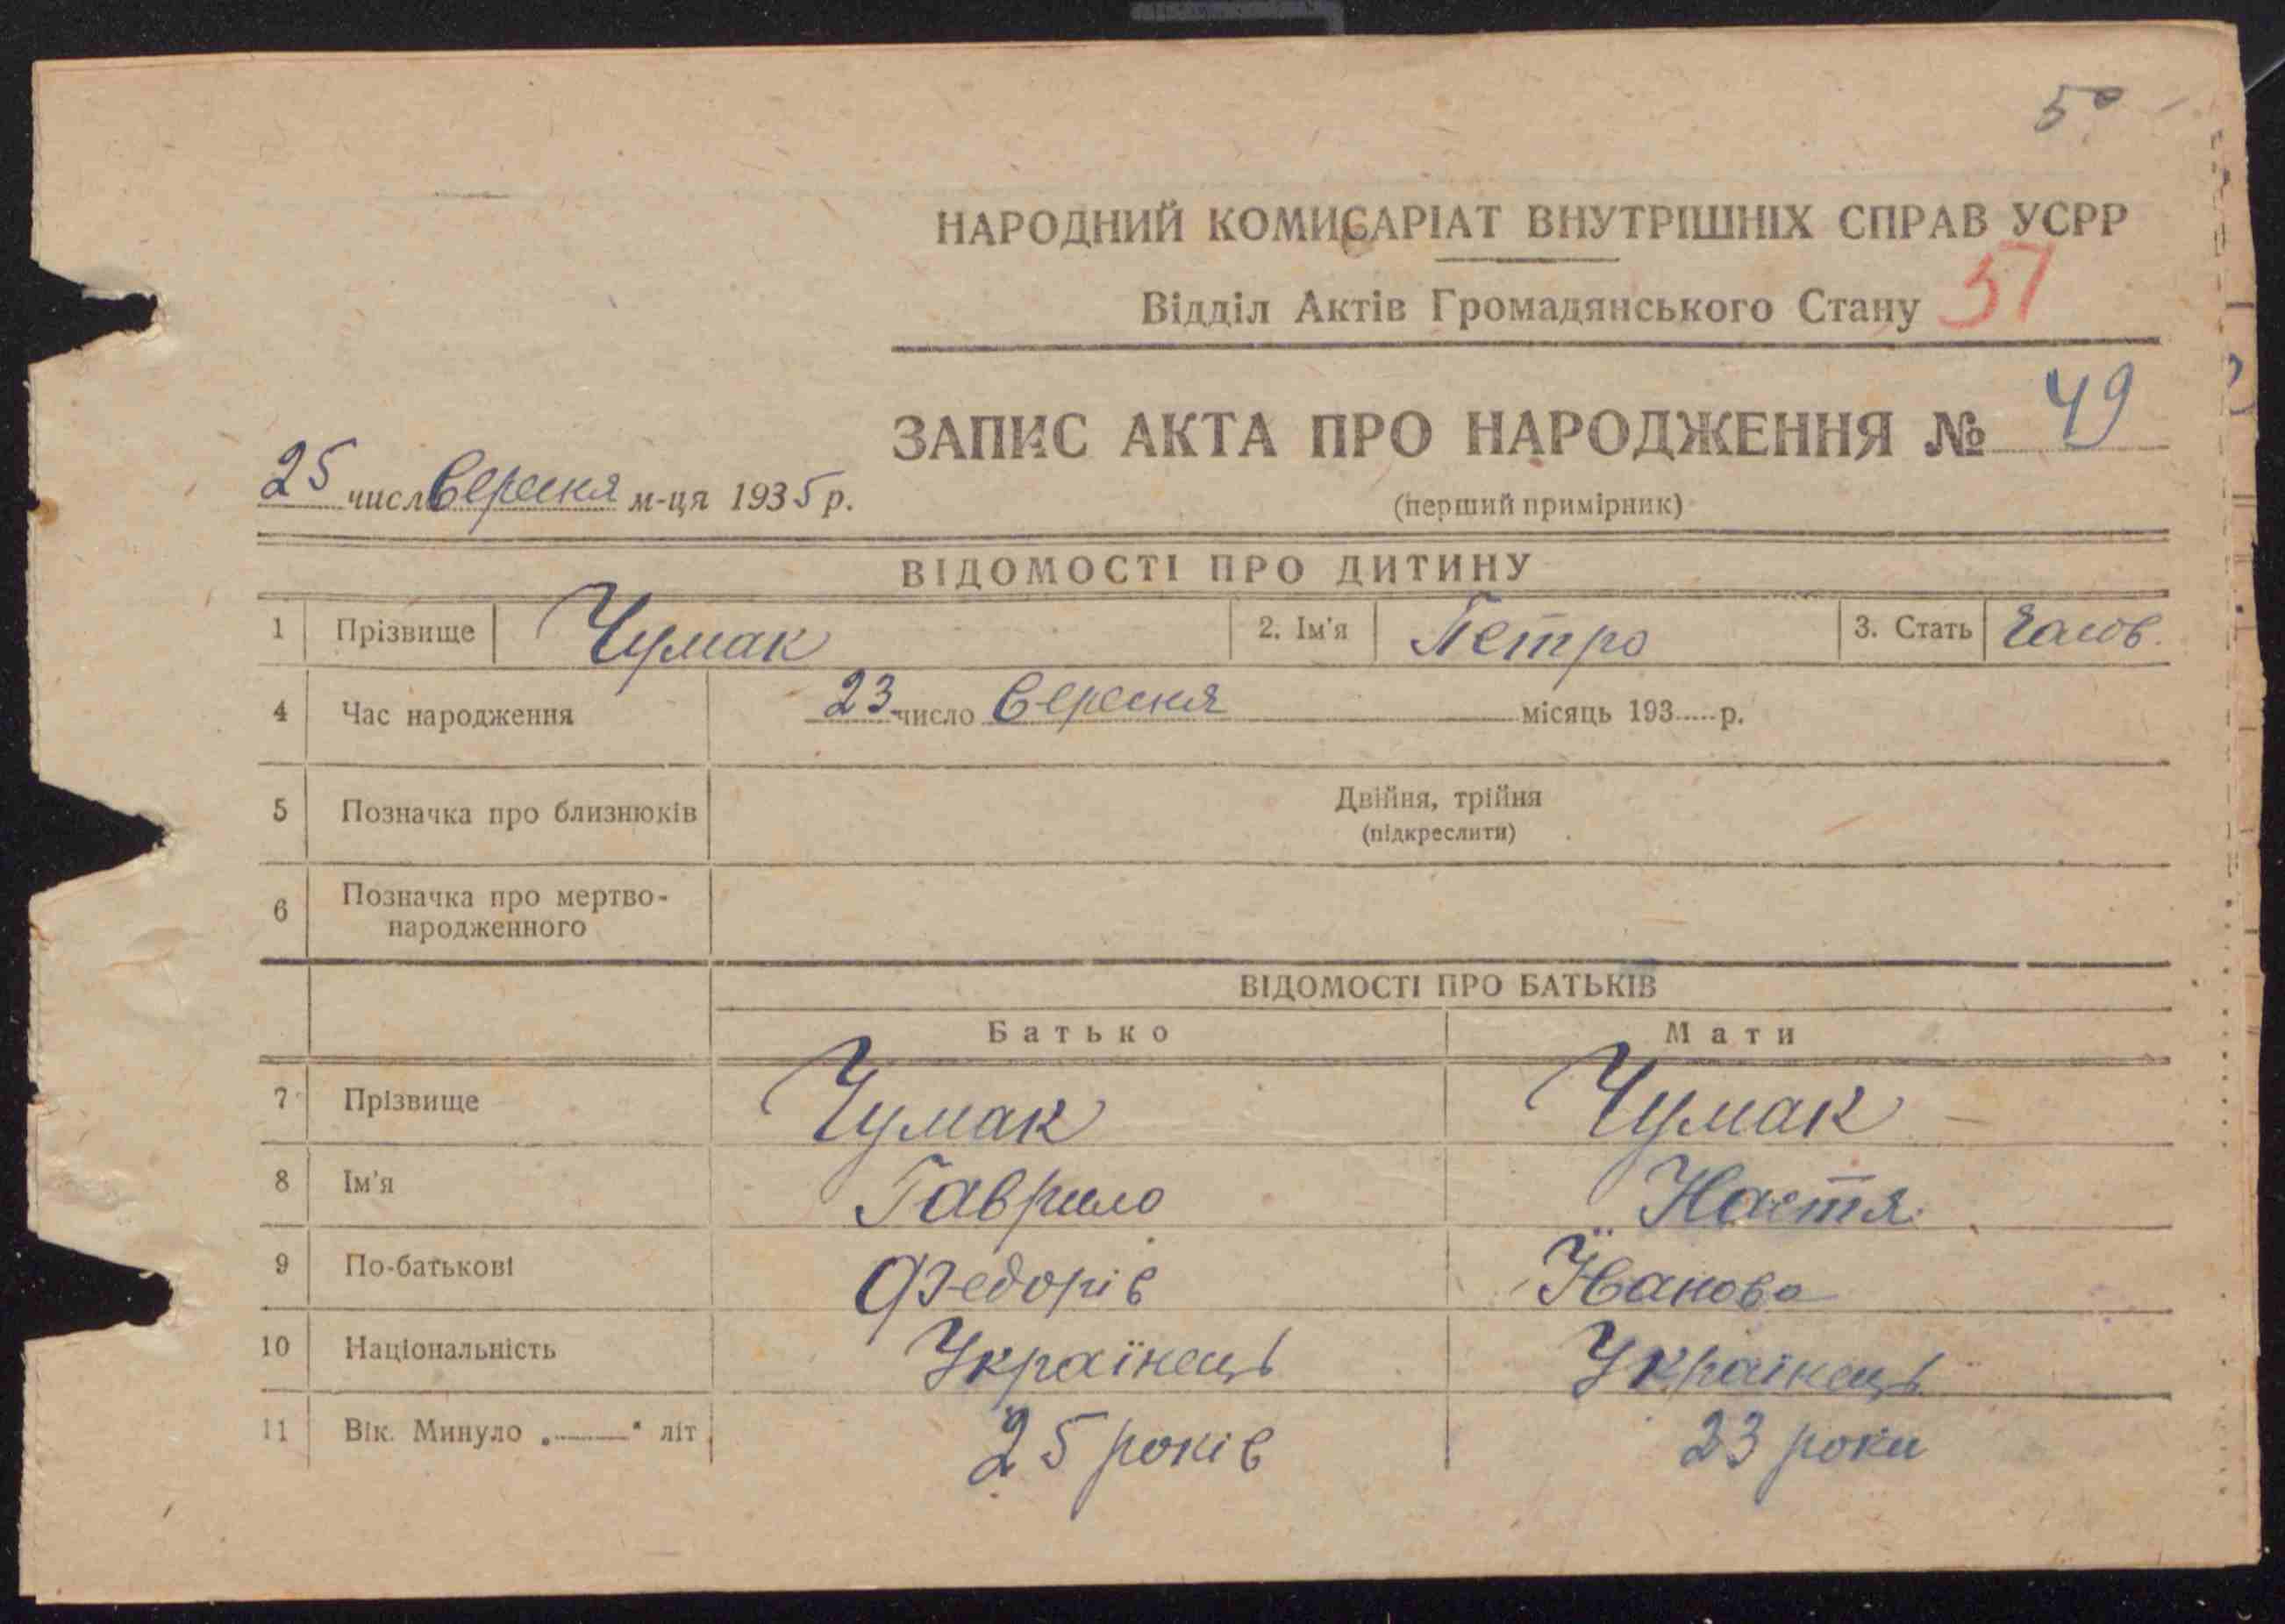 50
НАРОДНИЙ КОМИСАРІАТ ВНУТРІШНІХ СПРАВ УСРР
Відділ Актів Громадянського Стану 57
ЗАПИС АКТА ПРО НАРОДЖЕННЯ № 49
25 числ Вересня м-ця 1935 р.
(перший примірник)
ВІДОМОСТІ ПРО ДИТИНУ
1 Прізвище Чумак 2. Ім'я Петро 3. Стать Чолов.
4 Час народження 23 число Вересня місяць 193.....р.
5 Позначка про близнюків Двійня, трійня
(підкреслити)
6 Позначка про мертво-
народженного
ВІДОМОСТІ ПРО БАТЬКІВ
Батько Мати
7 Прізвище Чумак Чумак
8 Ім'я Гаврило Настя
9 По-батькові Федорів Іванова
10 Національність Українець Українець
11 Вік. Минуло „........" літ 25 років 23 роки